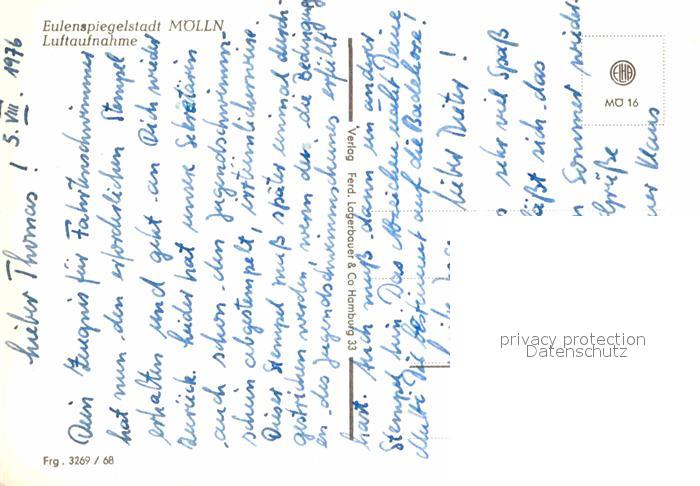 Eulenspiegelstadt MÖLLN
Luftaufnahme
MÖ 16
Verlag Ferd. Lagerbauer & Co Hamburg 33
Frg. 3269 / 68
Lieber Thomas! 5. VIII. 1976
Dein Zeugnis für Fahrtenschwimmer
hat nun den erforderlichen Stempel
erhalten und geht an Dich wieder
zurück. Leider hat unsere Sekretärin
auch schon den Jugendschwimm-
schein abgestempelt, irrtümlicherweise.
Dieser Stempel muß später einmal durch-
gestrichen werden, wenn du die Bedingung-
en des Jugendschwimmscheines erfüllt
hast. Auch muß dann ein anderer
Stempel hin. Das Abzeichen näht Deine
Mutti Dir bestimmt auf die Badehose!
lieber Dieter!
sehr viel Spaß
läßt sich das
Sommer wieder
Grüße
Klaus
privacy protection
Datenschutz